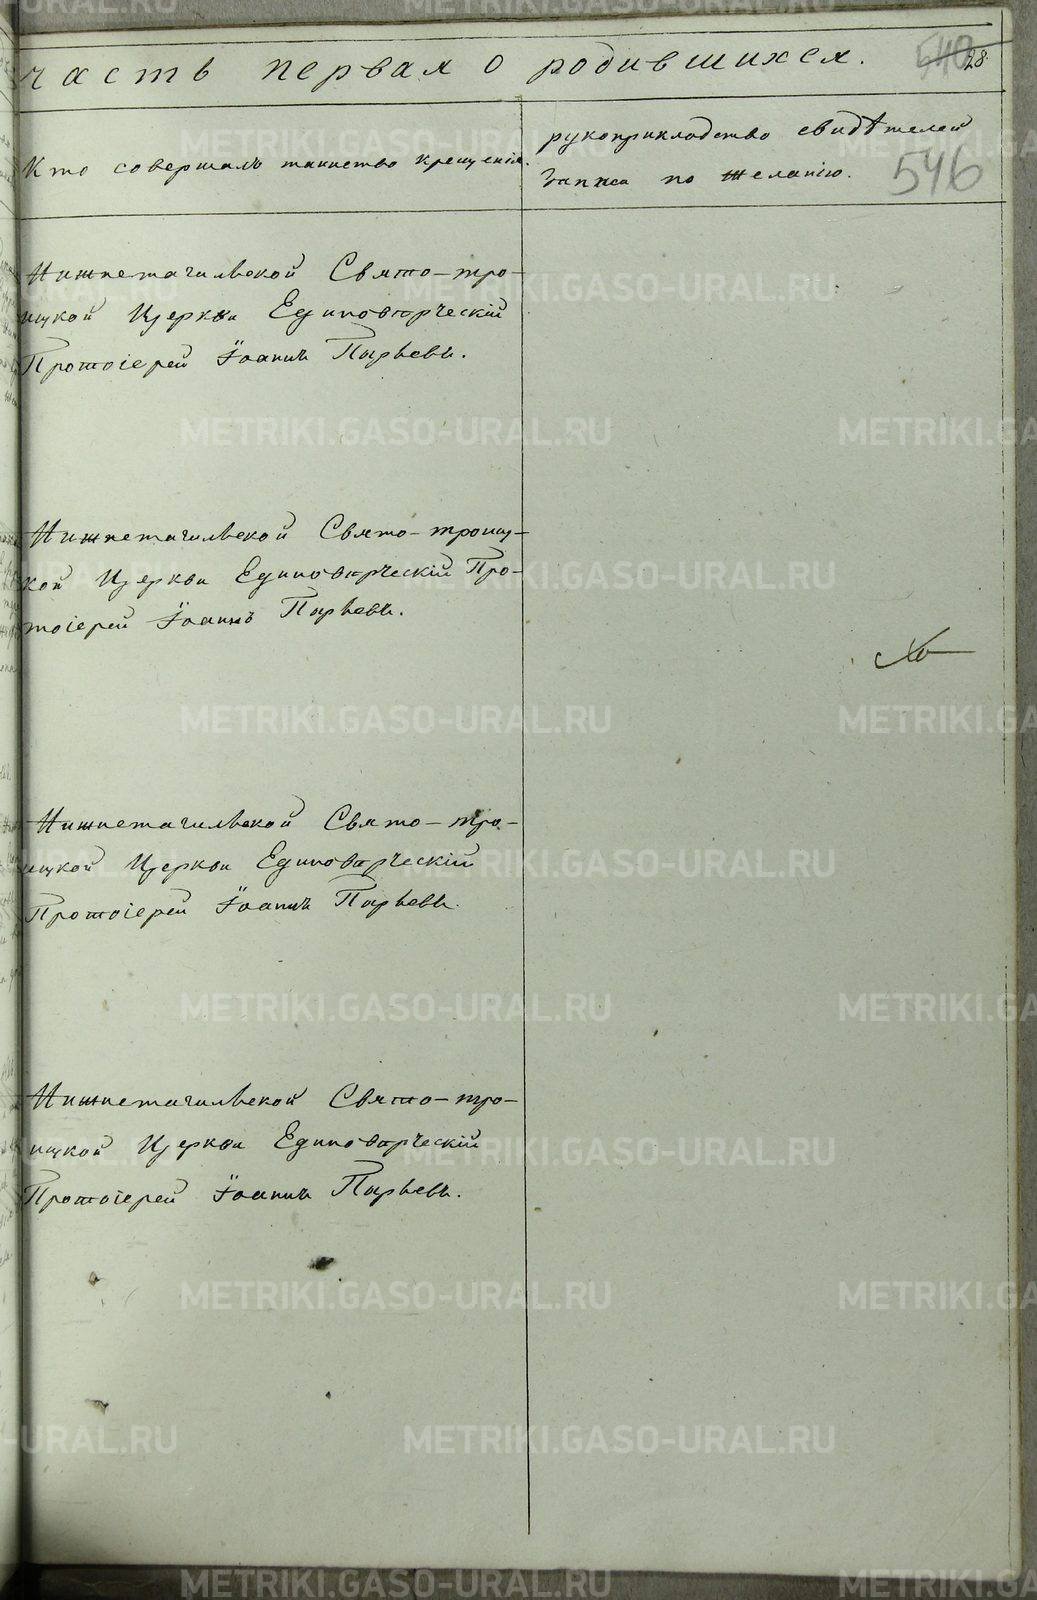 часть первая о родившихся.
540
28
Кто совершалъ таинство крещенія.
рукоприкладство свидѣтелей
записи по желанію.
546
Нижнетагильской Свято-тро-
ицкой Церкви Единовѣрческій
Протоіерей Іоаннъ Пырьевъ.
Нижнетагильской Свято-троиц-
кой Церкви Единовѣрческій Про-
тоіерей Іоаннъ Пырьевъ.
Нижнетагильской Свято-тро-
ицкой Церкви Единовѣрческій
Протоіерей Іоаннъ Пырьевъ.
Нижнетагильской Свято-тро-
ицкой Церкви Единовѣрческій
Протоіерей Іоаннъ Пырьевъ.
METRIKI.GASO-URAL.RU